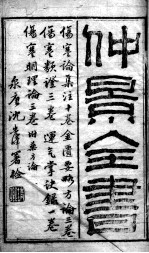 仲景全書
傷寒論集注十卷金匱要略方論三卷
傷寒類證三卷運氣掌訣錄一卷
傷寒明理論三卷附藥方論